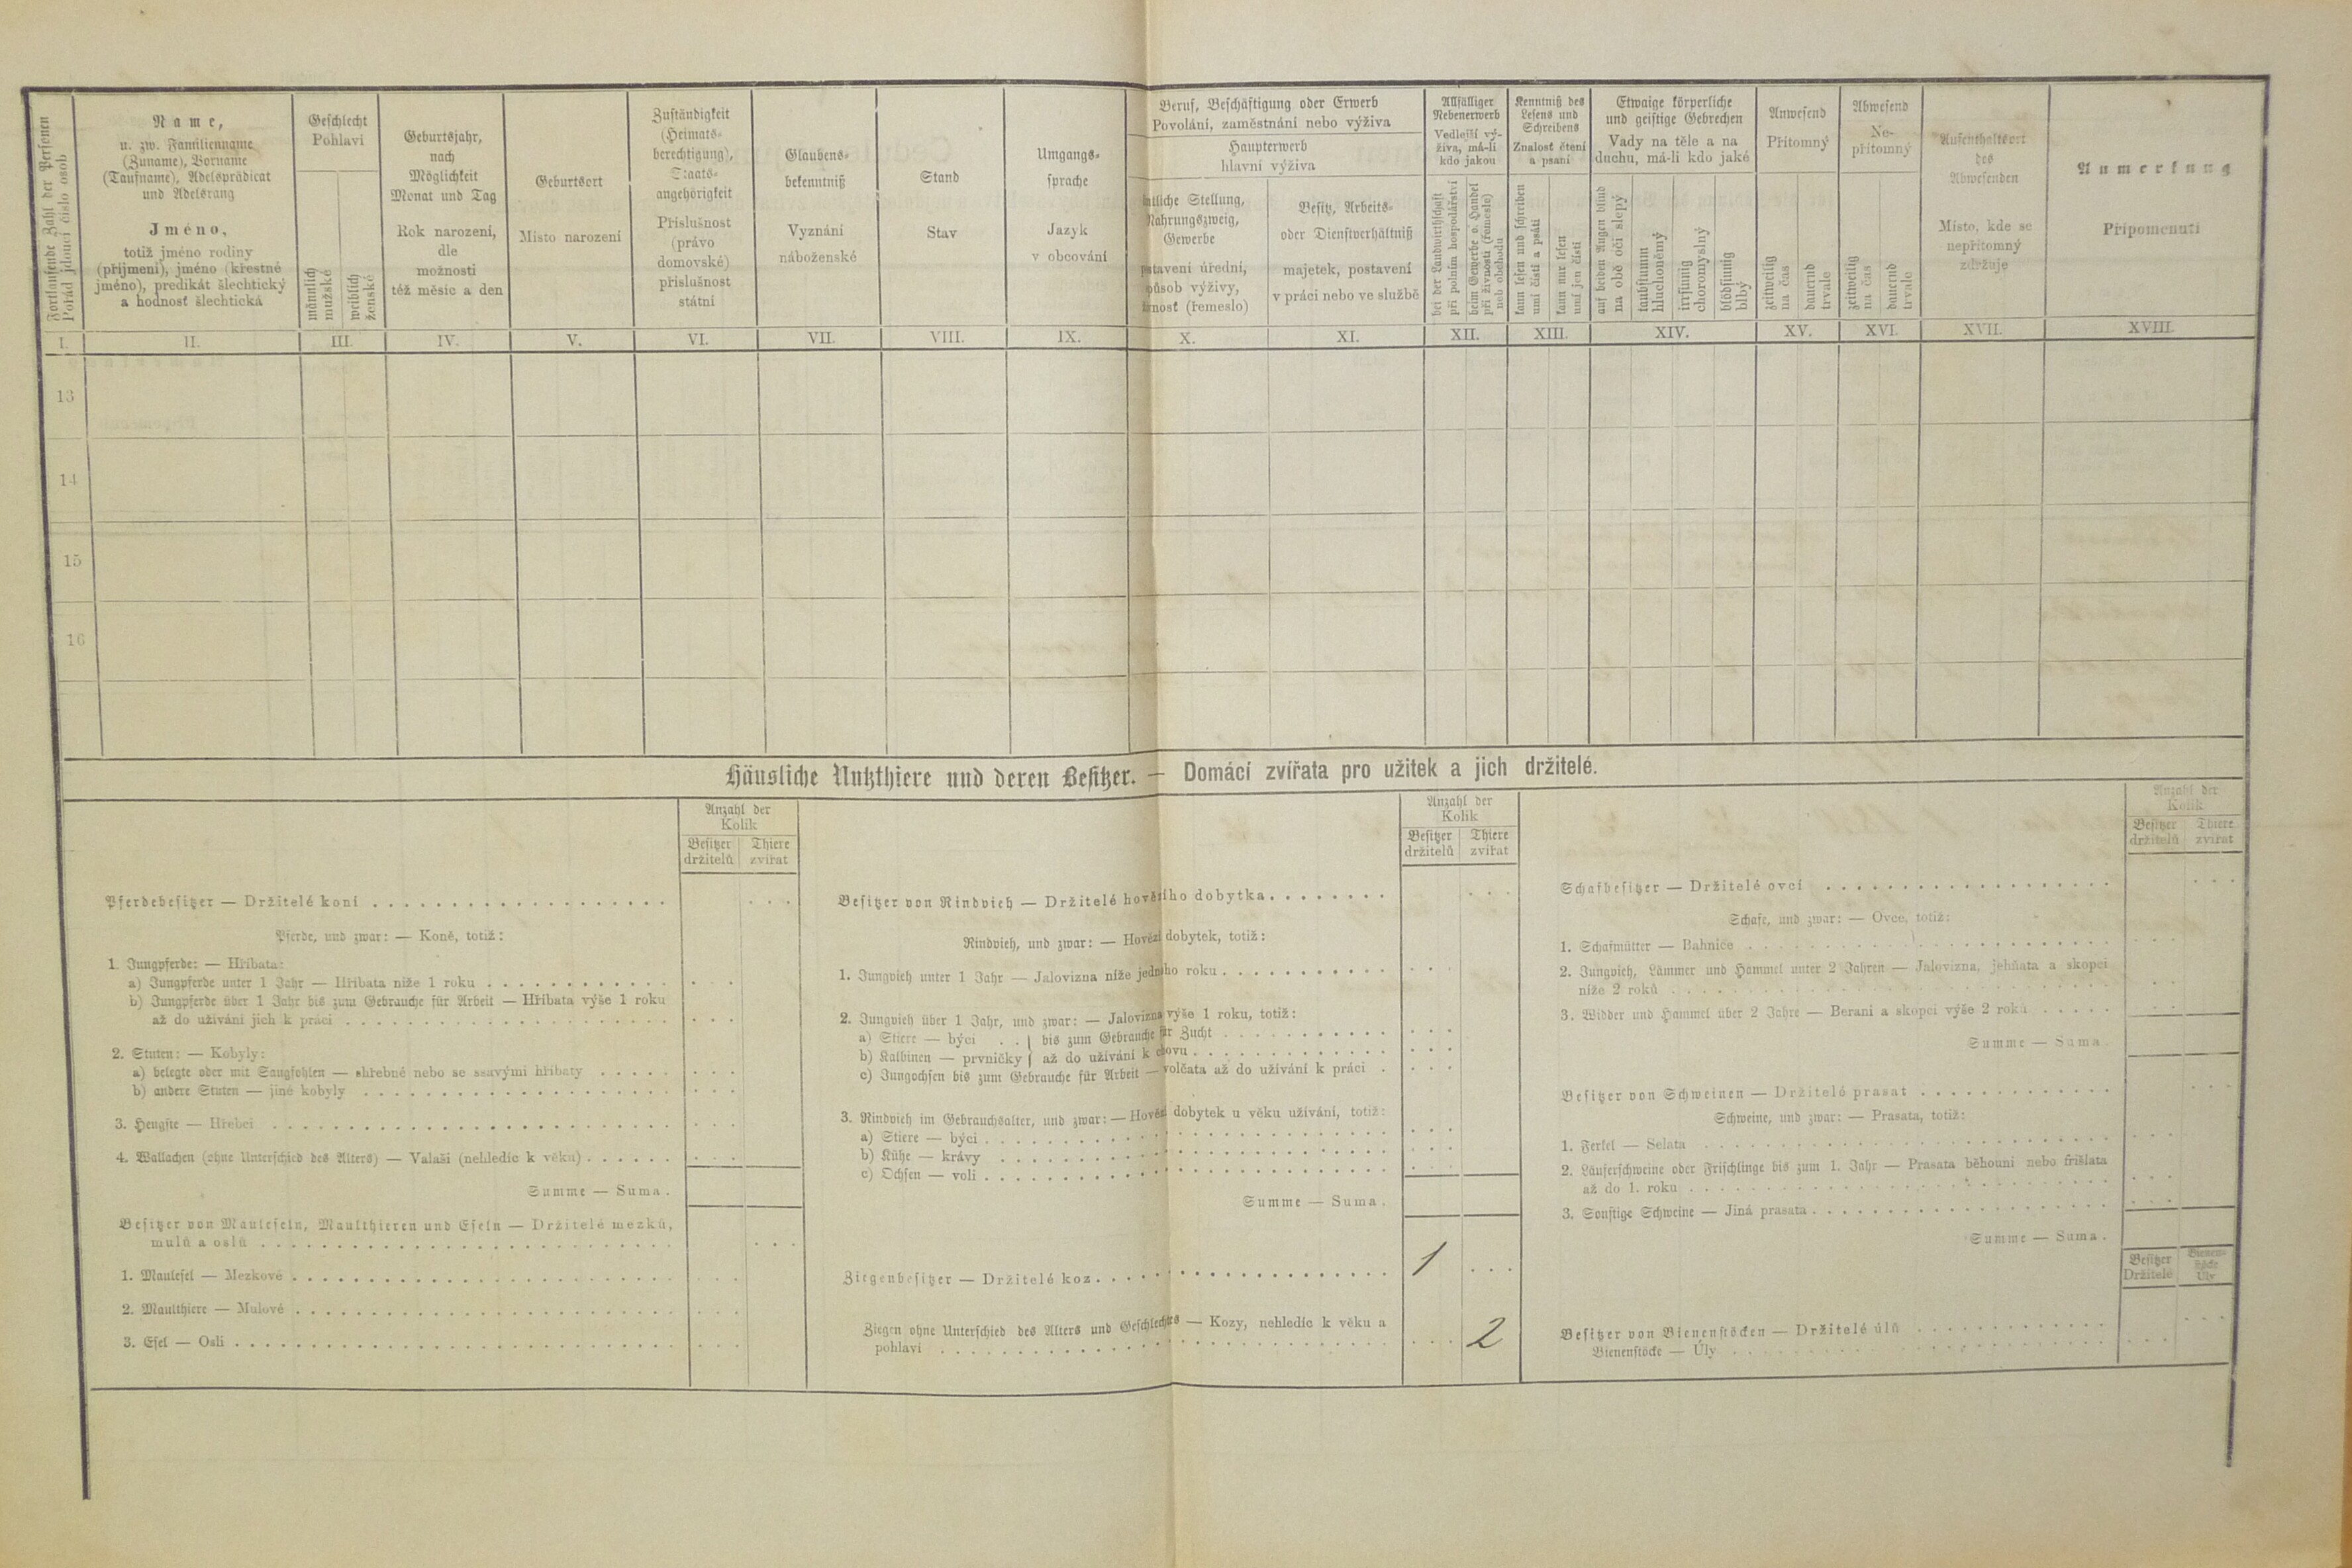 Fortlaufende Zahl der Personen
Pořád jdoucí číslo osob
Name,
u. zw. Familienname
(Zuname), Vorname
(Taufname), Adelsprädicat
und Adelsrang
Jméno,
totiž jméno rodiny
(příjmení), jméno (křestné
jméno), predikát šlechtický
a hodnosť šlechtická
Geschlecht
Pohlaví
männlich
mužské
weiblich
ženské
Geburtsjahr,
nach
Möglichkeit
Monat und Tag
Rok narození,
dle
možnosti
též měsíc a den
Geburtsort
Místo narození
Zuständigkeit
(Heimats-
berechtigung),
Staats-
angehörigkeit
Příslušnost
(právo
domovské)
příslušnost
státní
Glaubens-
bekenntniß
Vyznání
náboženské
Stand
Stav
Umgangs-
sprache
Jazyk
v obcování
Beruf, Beschäftigung oder Erwerb
Povolání, zaměstnání nebo výživa
Haupterwerb
hlavní výživa
Stellung,
Nahrungszweig,
Gewerbe
úřední,
výživy,
(řemeslo)
Besitz, Arbeits-
oder Dienstverhältniß
majetek, postavení
v práci nebo ve službě
Allfälliger
Nebenerwerb
Vedlejší vý-
živa, má-li
kdo jakou
bei der Landwirthschaft
při polním hospodářství
beim Gewerbe o. Handel
při živnosti (řemesle)
neb obchodu
Kenntniß des
Lesens und
Schreibens
Znalosť čtení
a psaní
kann lesen und schreiben
umí čísti a psáti
kann nur lesen
umí jen čísti
Etwaige körperliche
und geistige Gebrechen
Vady na těle a na
duchu, má-li kdo jaké
auf beiden Augen blind
na obě oči slepý
taubstumm
hluchoněmý
irrsinnig
choromyslný
blödsinnig
blbý
Anwesend
Přítomný
zeitweilig
na čas
dauernd
trvale
Abwesend
Ne-
přítomný
zeitweilig
na čas
dauernd
trvale
Aufenthaltsort
des
Abwesenden
Místo, kde se
nepřítomný
zdržuje
Anmerkung
Připomenutí
I. II. III. IV. V. VI. VII. VIII. IX. X. XI. XII. XIII. XIV. XV. XVI. XVII. XVIII.
13
14
15
16
Häusliche Nutzthiere und deren Besitzer. — Domácí zvířata pro užitek a jich držitelé.
Anzahl der
Kolik
Besitzer Thiere
držitelů zvířat
Pferdebesitzer — Držitelé koní
Pferde, und zwar: — Koně, totiž:
1. Jungpferde: — Hříbata:
a) Jungpferde unter 1 Jahr — Hříbata níže 1 roku
b) Jungpferde über 1 Jahr bis zum Gebrauche für Arbeit — Hříbata výše 1 roku
až do užívání jich k práci
2. Stuten: — Kobyly:
a) belegte oder mit Saugfohlen — shřebné nebo se ssavými hříbaty
b) andere Stuten — jiné kobyly
3. Hengste — Hřebci
4. Wallachen (ohne Unterschied des Alters) — Valaši (nehledíc k věku)
Summe — Suma.
Besitzer von Mauleseln, Maulthieren und Eseln — Držitelé mezků,
mulů a oslů
1. Maulesel — Mezkové
2. Maulthiere — Mulové
3. Esel — Osli
Anzahl der
Kolik
Besitzer Thiere
držitelů zvířat
Besitzer von Rindvieh — Držitelé hovězího dobytka
Rindvieh, und zwar: — Hovězí dobytek, totiž:
1. Jungvieh unter 1 Jahr — Jalovizna níže jednoho roku
2. Jungvieh über 1 Jahr, und zwar: — Jalovizna výše 1 roku, totiž:
a) Stiere — býci . . } bis zum Gebrauche für Zucht
b) Kalbinen — prvničky } až do užívání k chovu
c) Jungochsen bis zum Gebrauche für Arbeit — volčata až do užívání k práci
3. Rindvieh im Gebrauchsalter, und zwar: — Hovězí dobytek u věku užívání, totiž:
a) Stiere — býci
b) Kühe — krávy
c) Ochsen — voli
Summe — Suma.
Ziegenbesitzer — Držitelé koz 1
Ziegen ohne Unterschied des Alters und Geschlechtes — Kozy, nehledíc k věku a
pohlaví 2
Anzahl der
Kolik
Besitzer Thiere
držitelů zvířat
Schafbesitzer — Držitelé ovcí
Schafe, und zwar: — Ovce, totiž:
1. Schafmütter — Bahnice
2. Jungvieh, Lämmer und Hammel unter 2 Jahren — Jalovizna, jehňata a skopci
níže 2 roků
3. Widder und Hammel über 2 Jahre — Berani a skopci výše 2 roků
Summe — Suma.
Besitzer von Schweinen — Držitelé prasat
Schweine, und zwar: — Prasata, totiž:
1. Ferkel — Selata
2. Läuferschweine oder Frischlinge bis zum 1. Jahr — Prasata běhouni nebo frišlata
až do 1. roku
3. Sonstige Schweine — Jiná prasata
Summe — Suma.
Besitzer Bienen-
stöcke
Držitelé Úly
Besitzer von Bienenstöcken — Držitelé úlů
Bienenstöcke — Úly